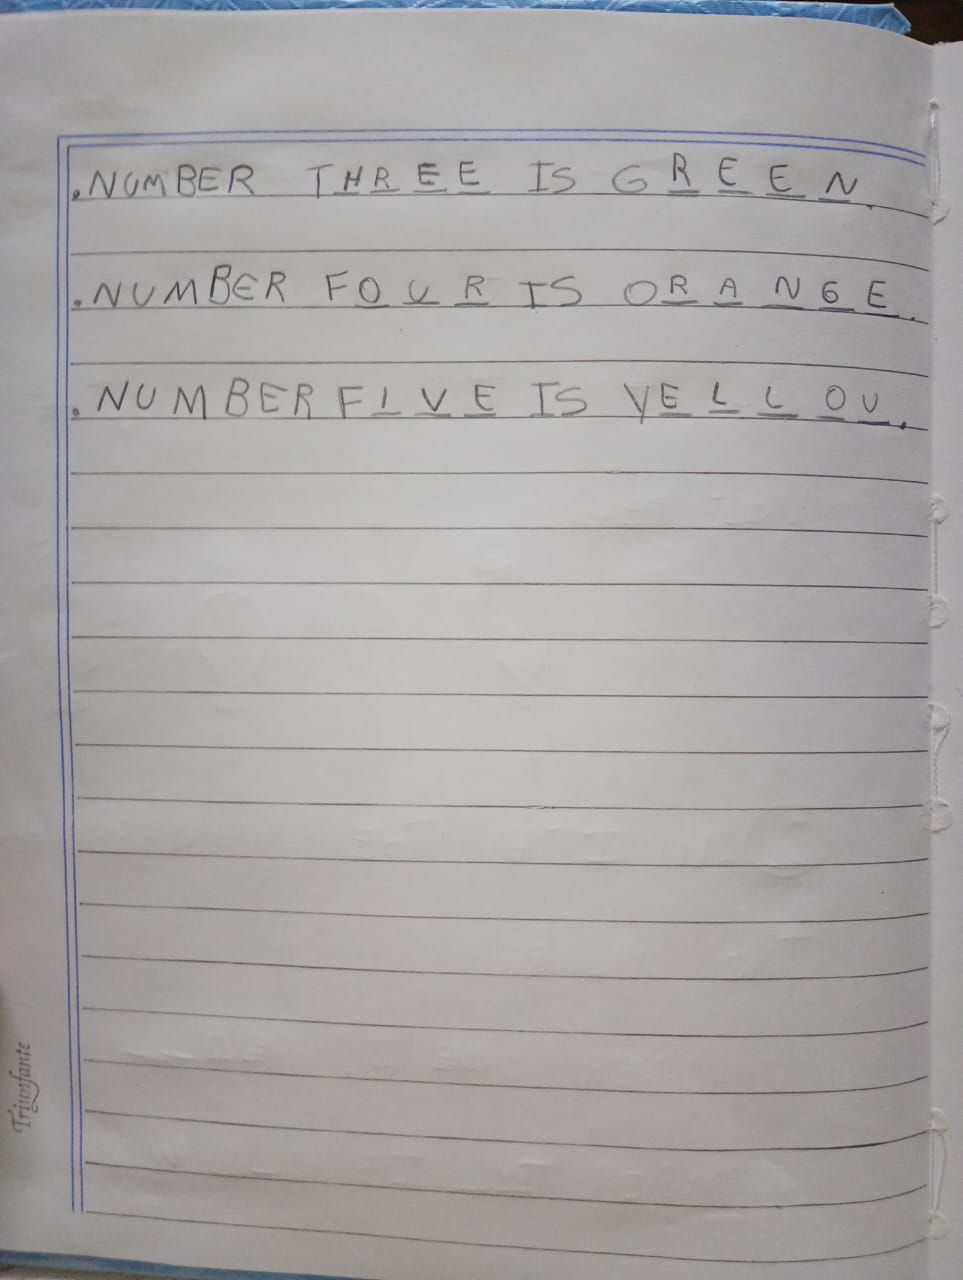 .NUMBER THREE IS GREEN.
.NUMBER FOUR IS ORANGE.
.NUMBER FIVE IS YELLOU.
Triunfante